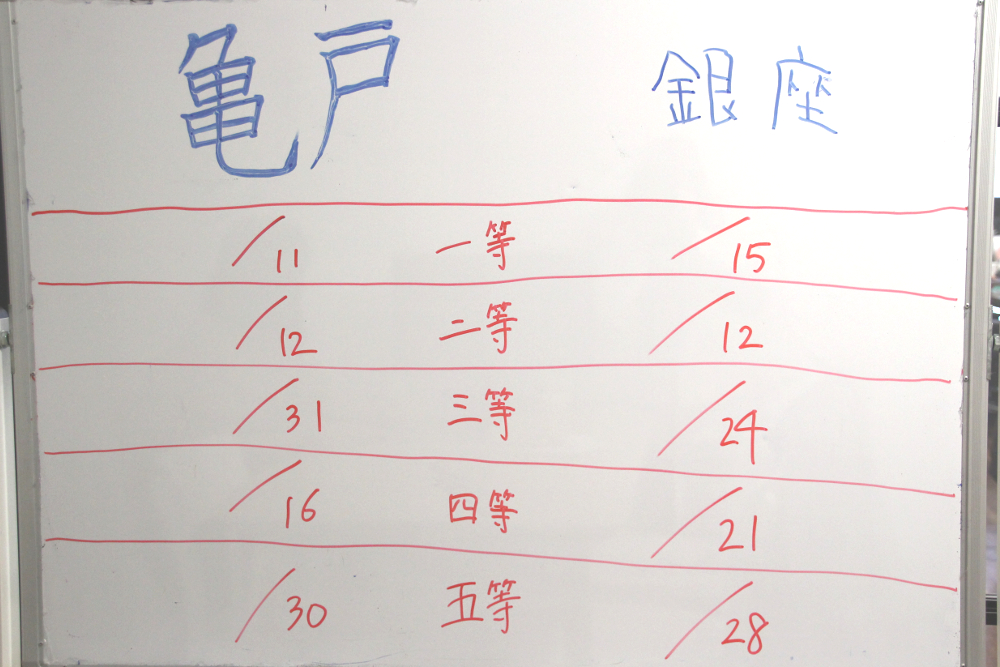 亀戸 銀座
/11 一等 /15
/12 二等 /12
/31 三等 /24
/16 四等 /21
/30 五等 /28